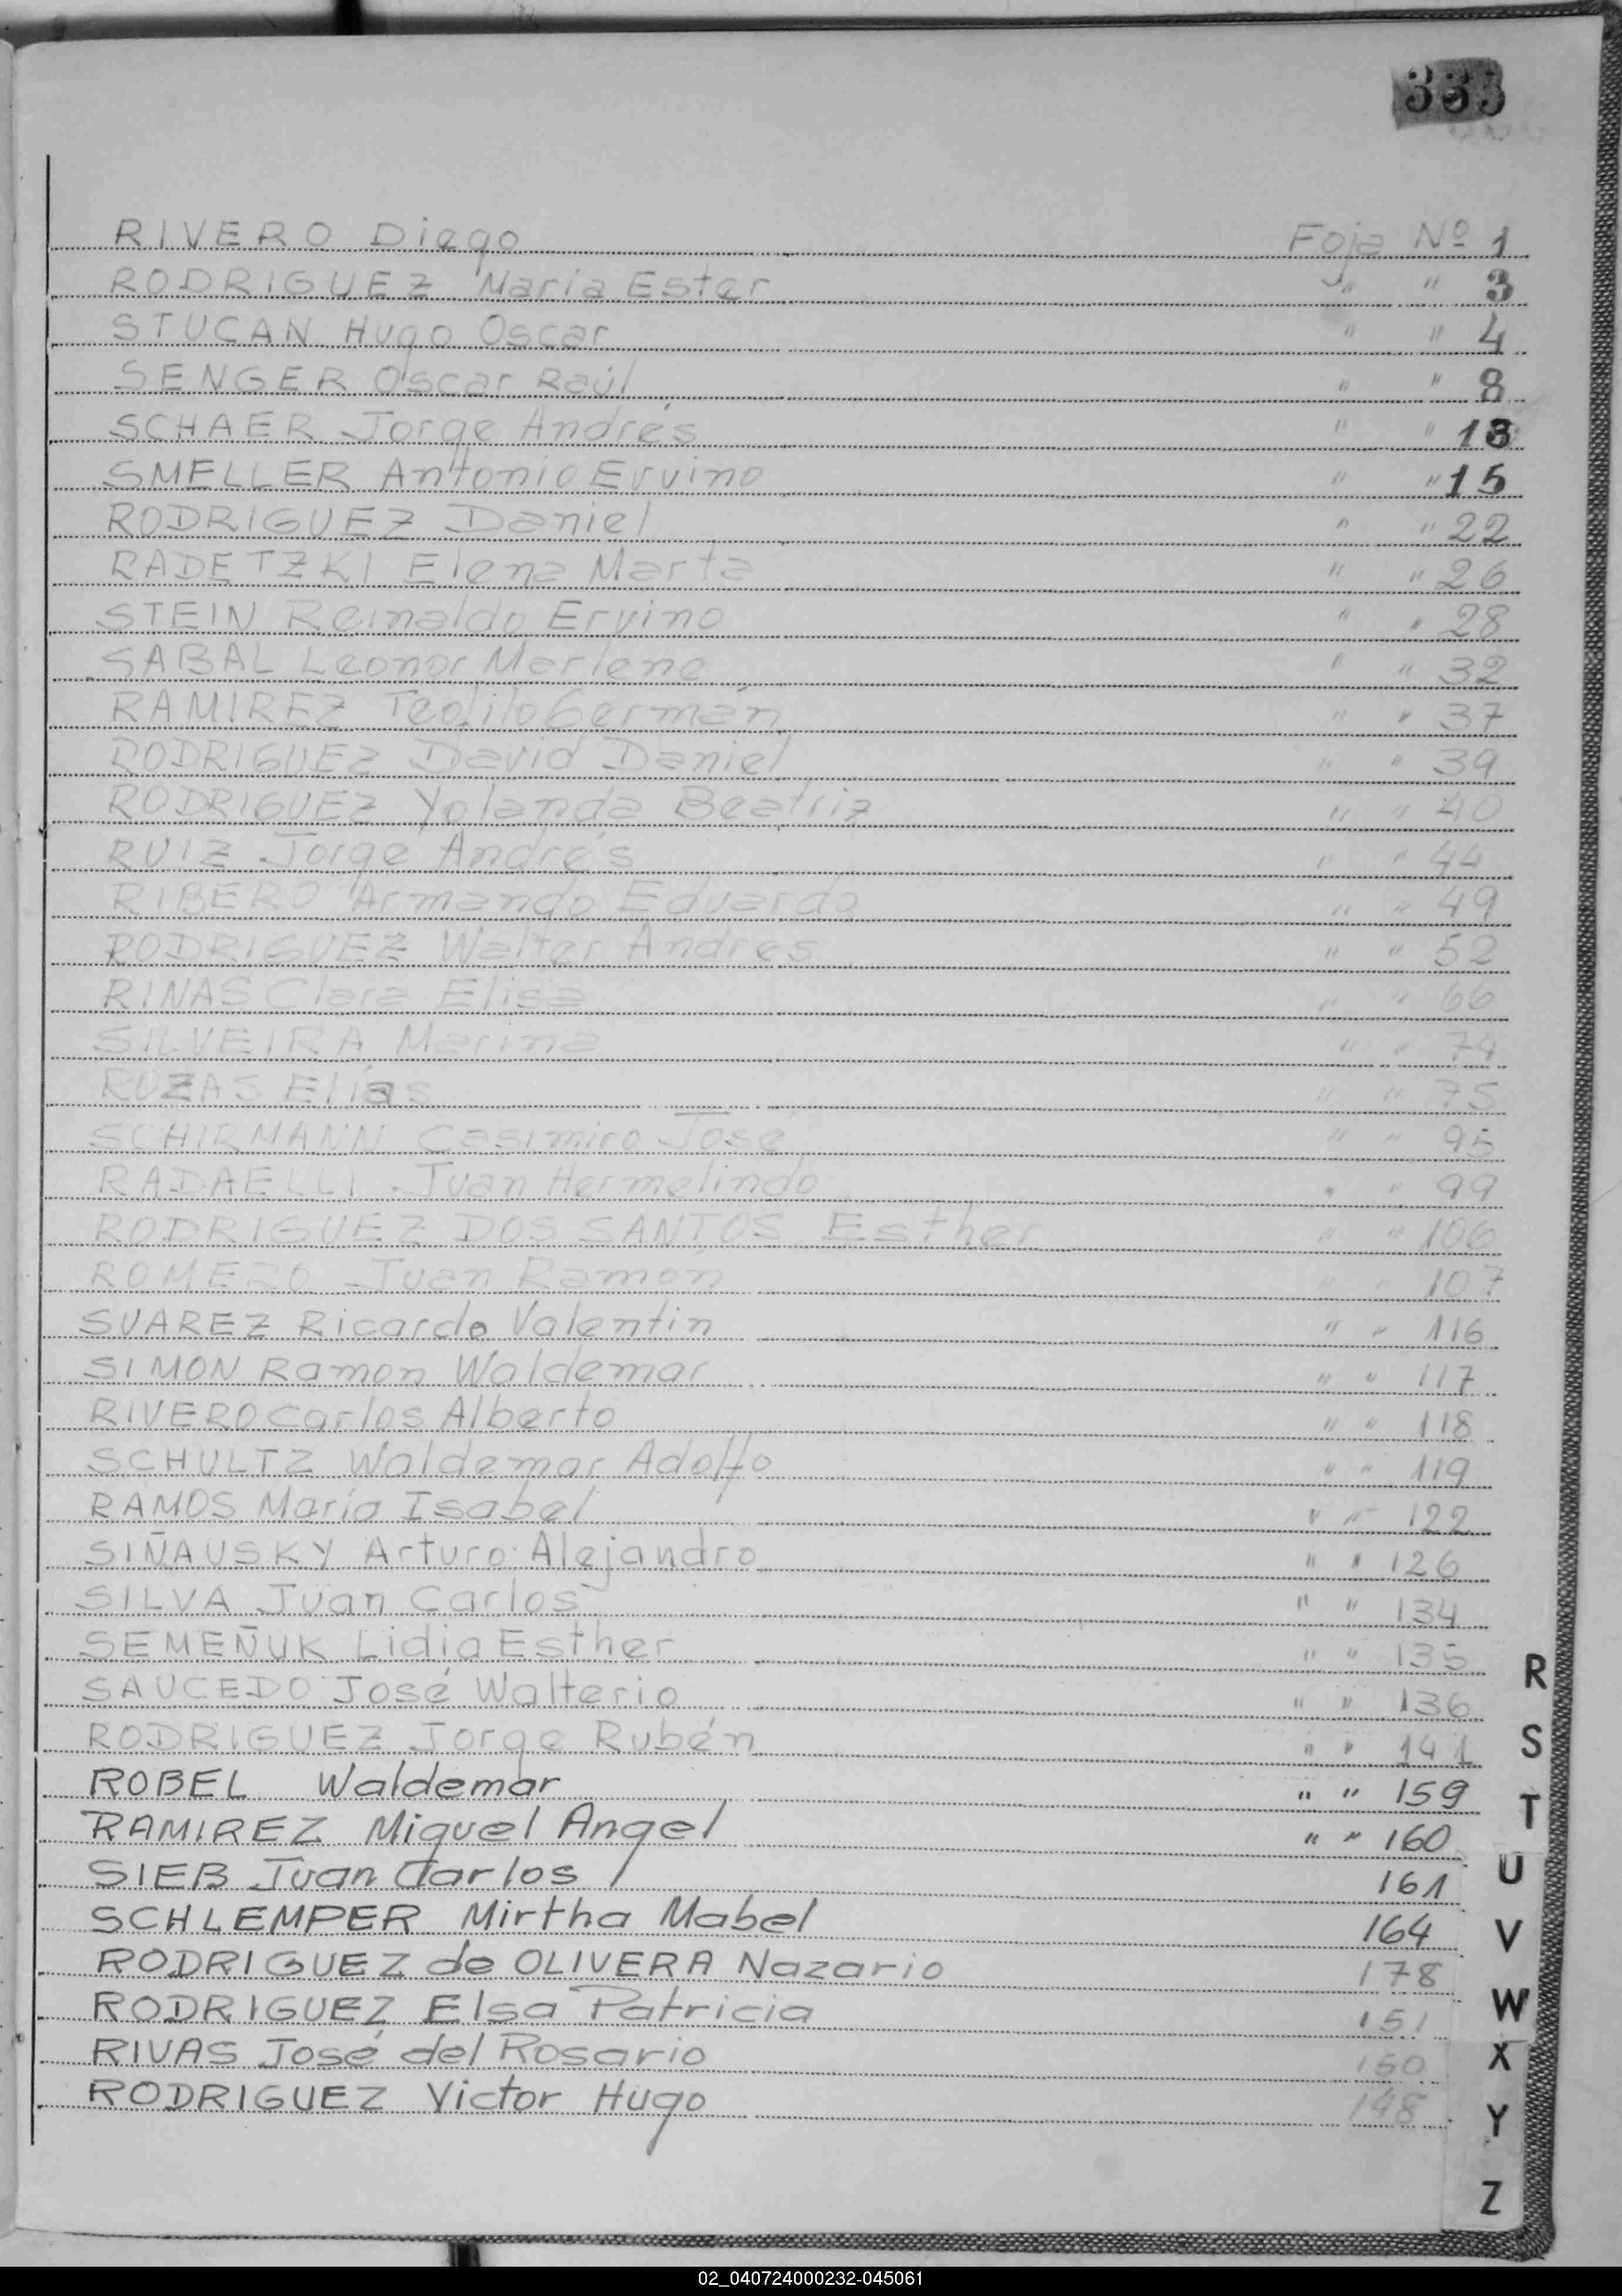 335
RIVERO Diego Foja Nº 1
RODRIGUEZ Maria Ester " " 3
STUCAN Hugo Oscar " " 4
SENGER Oscar Raúl " " 8
SCHAER Jorge Andrés " " 13
SMELLER Antonio Ervino " " 15
RODRIGUEZ Daniel " " 22
RADETZKI Elena Marta " " 26
STEIN Reinaldo Ervino " " 28
SABAL Leonor Marlene " " 32
RAMIREZ Teofilo Germán " " 37
RODRIGUEZ David Daniel " " 39
RODRIGUEZ Yolanda Beatriz " " 40
RUIZ Jorge Andrés " " 44
RIBERO Armando Eduardo " " 49
RODRIGUEZ Walter Andres " " 52
RINAS Clara Elisa " " 66
SILVEIRA Marina " " 74
ROZAS Elías " " 75
SCHIRMANN Casimiro José " " 95
RADAELLI Juan Hermelindo " " 99
RODRIGUEZ DOS SANTOS Esther " " 106
ROMERO Juan Ramón " " 107
SUAREZ Ricardo Valentin " " 116
SIMON Ramon Waldemar " " 117
RIVERO Carlos Alberto " " 118
SCHULTZ Waldemar Adolfo " " 119
RAMOS María Isabel " " 122
SIÑAUSKY Arturo Alejandro " " 126
SILVA Juan Carlos " " 134
SEMEÑUK Lidia Esther " " 135
SAUCEDO José Walterio " " 136
RODRIGUEZ Jorge Rubén " " 141
ROBEL Waldemar " " 159
RAMIREZ Miguel Angel " " 160
SIEB Juan Carlos 161
SCHLEMPER Mirtha Mabel 164
RODRIGUEZ de OLIVERA Nazario 178
RODRIGUEZ Elsa Patricia 151
RIVAS José del Rosario 150
RODRIGUEZ Victor Hugo 148
R
S
T
U
V
W
X
Y
Z
02_040724000232-045061